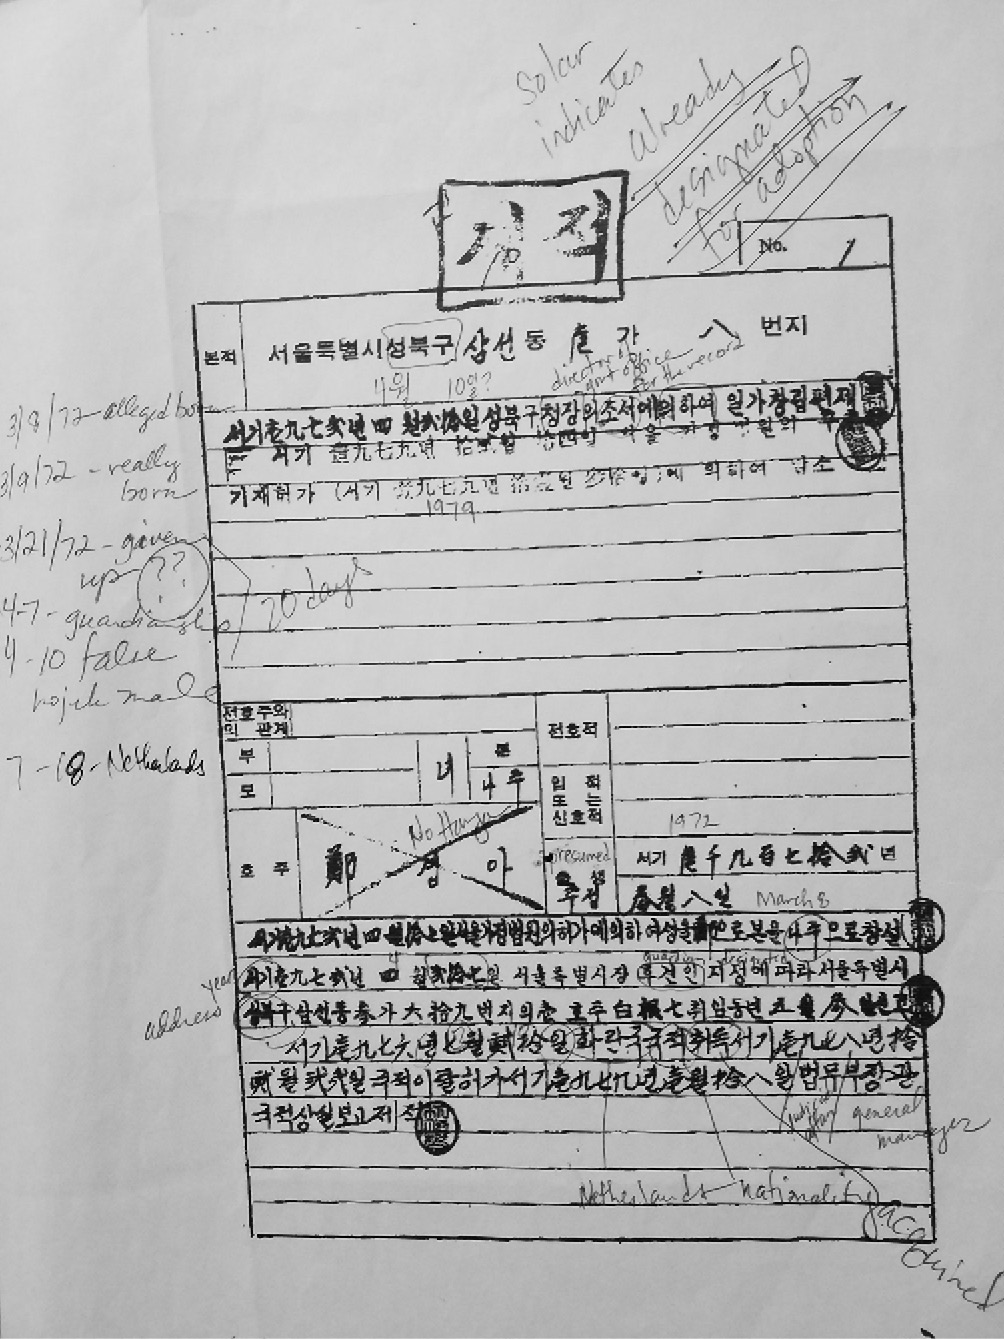 solar
indicates
already
designated
for adoption
제적
No. 1
본적 서울특별시성북구 삼선동 壹가 八 번지
4월 10일?
director's
gov't office
for the record
3/8/72-alleged born
서기壹九七弐년 四 월 성북구청장의조서에의하여 일가창립편제
3/9/72 - really
born
서기 壹九七九년 拾弐월 拾四일 서울 가정 법원의
기재허가 (서기 壹九七九년)에 의하여 말소
1979
3/21/72 - given
up ??
4-7- guardianship
20 days
4-10 false
hojuk made
7-18-Netherlands
전호주와
의 관계
전호적
부
모
녀
본
나주
입적
또는
신호적
No Hanja
1972
호주
鄭 경 아
presumed
출생
추정
서기 壹千九百七拾弐年
參월八일 March 8
서기壹九七弐년 四월 서울가정법원의허가에의하여성을鄭으로본을나주으로창설
year
4
guardian designated
서기壹九七弐년 四월 일 서울특별시장 후견인 지정에따라서울특별시
address
성북구삼선동參가六拾九번지의 호주白 취임동년五월
서기壹九七六년七월弐拾일화란국국적취득서기壹九七八년拾
弐월弐弐일국적이탈허가서기壹九七九년壹월拾八일법무부장관
국적상실보고제적
judicial
affair
general
manager
Netherlands nationality
acquired